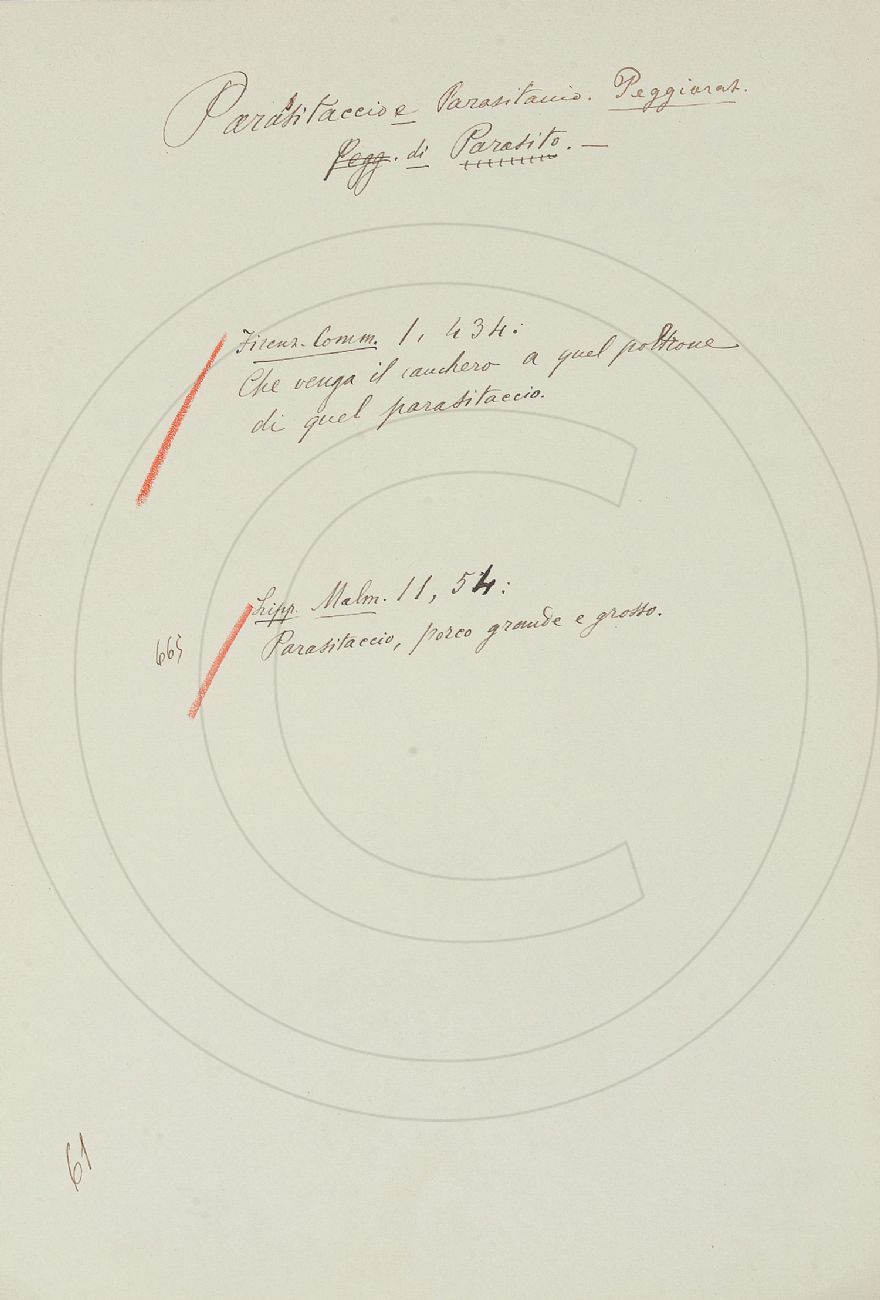 Parasitaccio e Parasitaccio. Peggiorat.
Pegg. di Parasito. —
Firenz. Comm. 1, 434:
Che venga il canchero a quel poltrone
di quel parasitaccio.
Lipp. Malm. 11, 54:
Parasitaccio, porco grande e grosso.
665
61